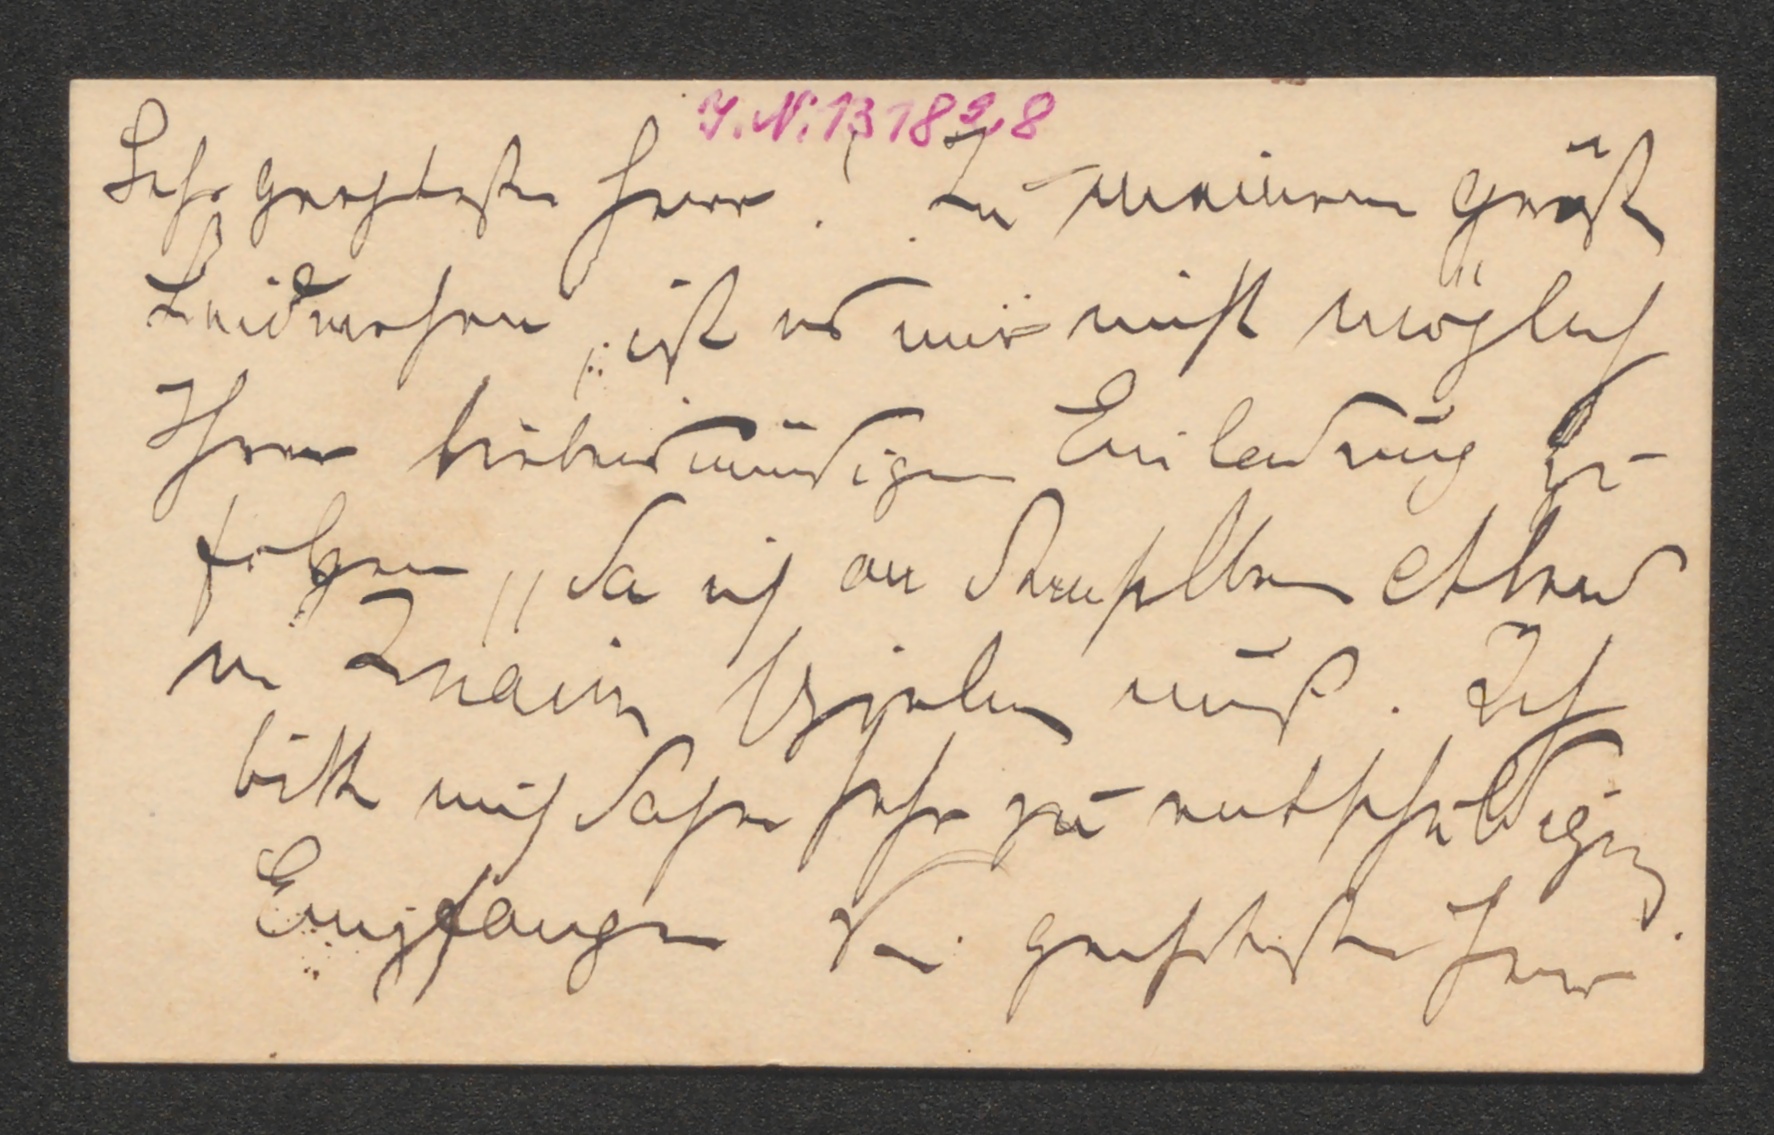 I.N. 131828
Sehr geehrtester Herr! Zu meinem größten
Leidwesen, ist es mir nicht möglich
Ihrer liebenswürdigen Einladung zu
folgen, da ich an demselben Abend
in Znaim spielen muß. Ich
bitte mich daher sehr zu entschuldigen.
Empfangen Sie geehrtester Herr